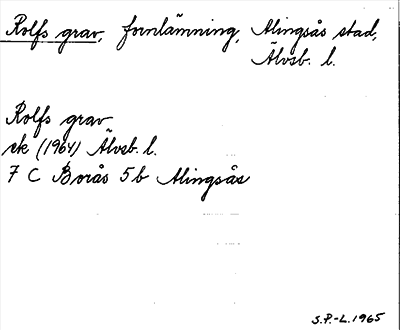 Rolfs grav, fornlämning, Alingsås stad,
Älvsb. l.
Rolfs grav
ek (1964) Älvsb. l.
7 C Borås 5b Alingsås
S.P.-L. 1965